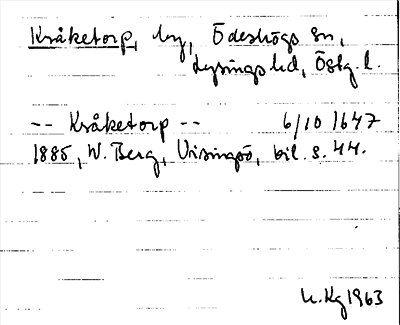 Kråketorp, by, Ödeshögs sn,
Lysings hd, Östg. l.
-- Kråketorp -- 6/10 1647
1885, W. Berg, Visingsö, bil. s. 44.
H. Kg 1963